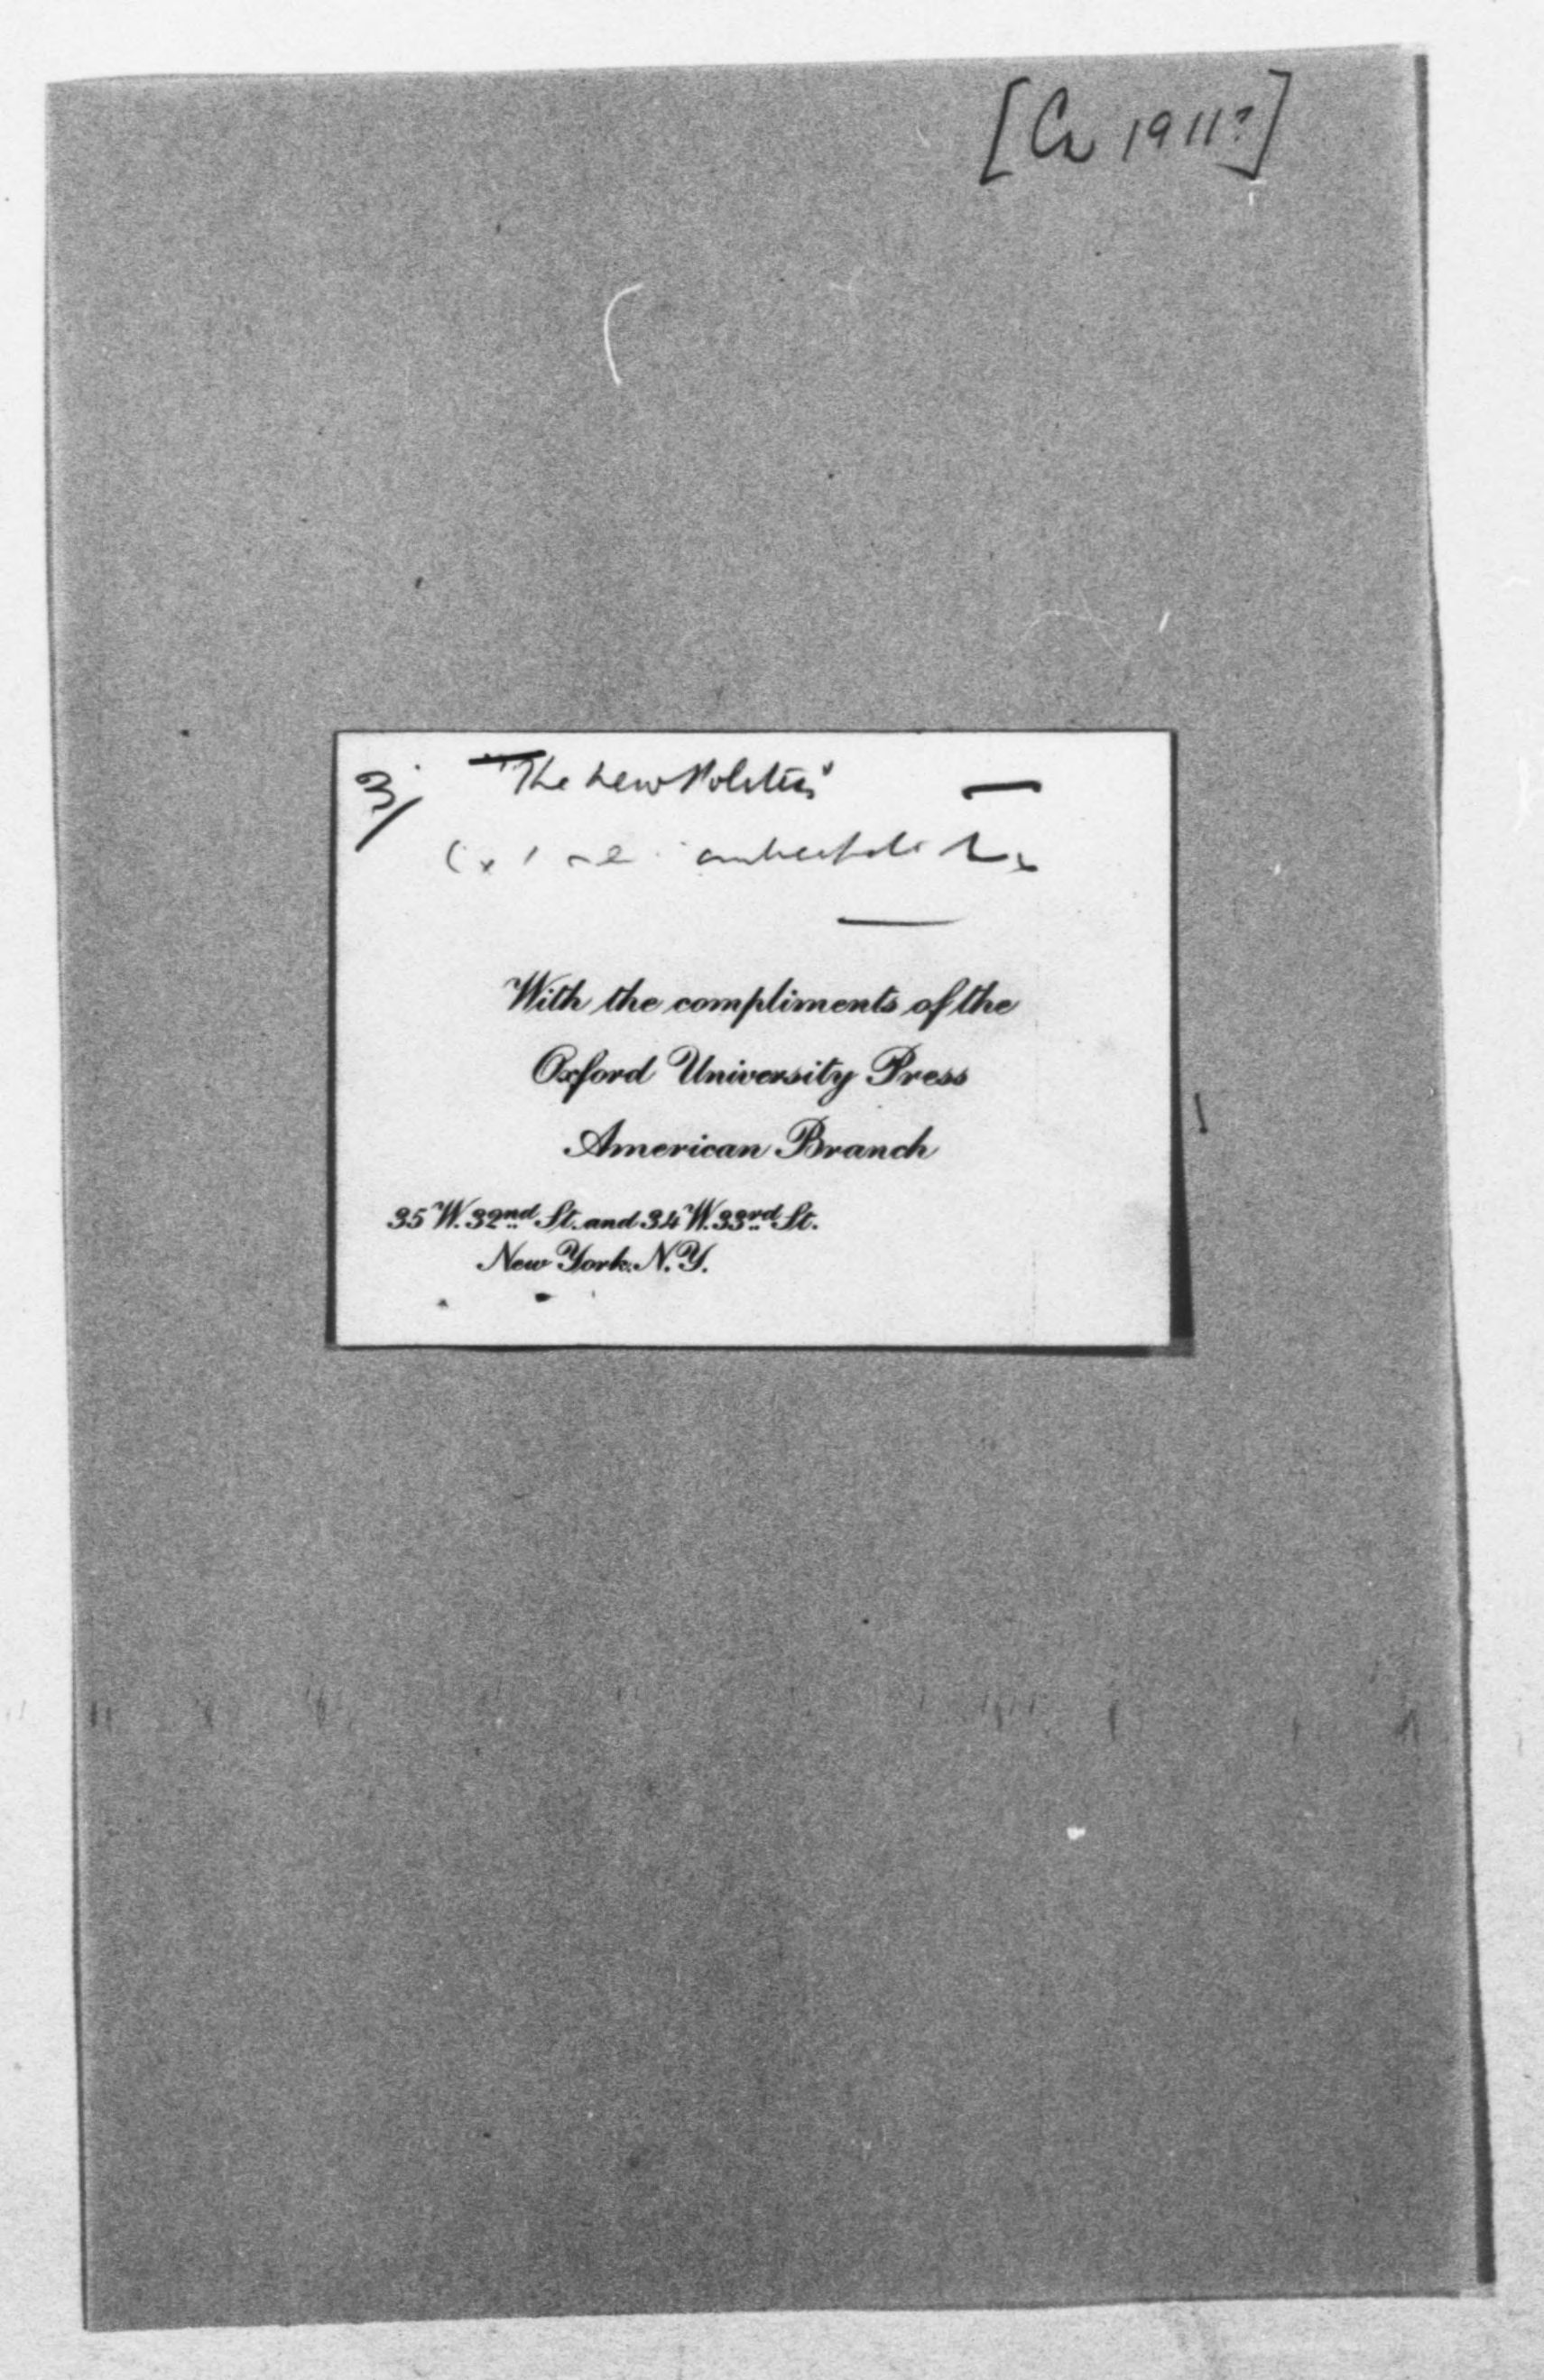 [Ca 1911?]
3/ "The New Politics"
With the compliments of the
Oxford University Press
American Branch
35 W. 32nd St. and 34 W. 33rd St.
New York. N.Y.